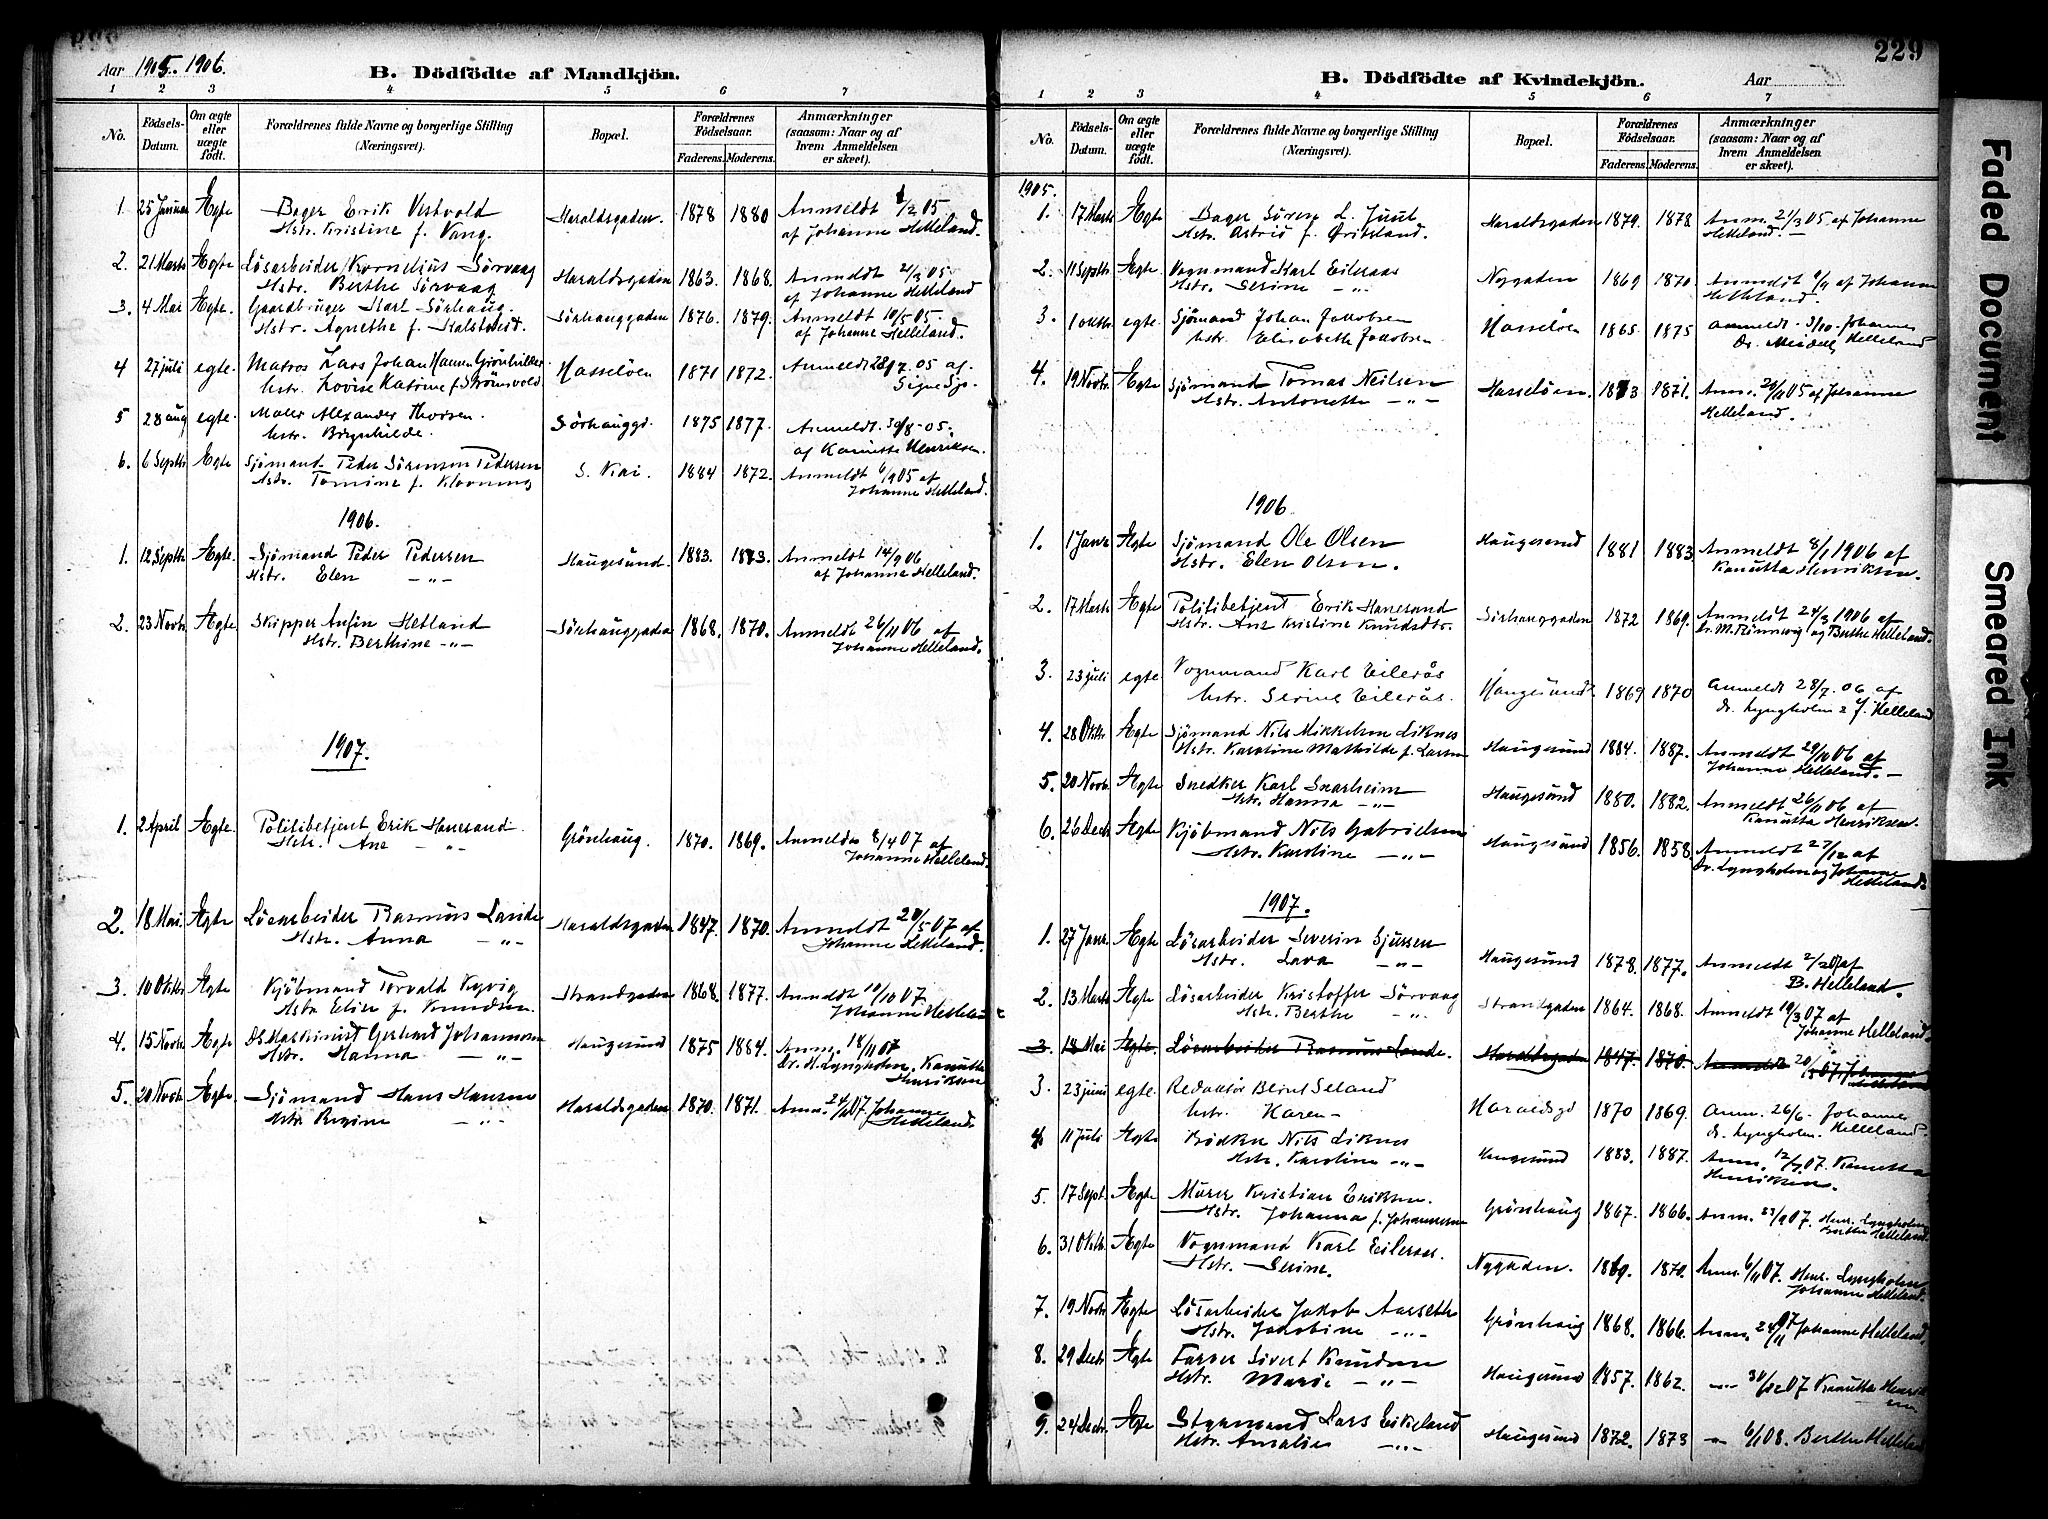 229
Aar 1905. 1906.
B. Dödfödte af Mandkjön.
1 2 3 4 5 6 7
No.
Födsels-Datum.
Om ægte eller uægte födt.
Forældrenes fulde Navne og borgerlige Stilling (Næringsvei).
Bopæl.
Forældrenes Födselsaar.
Faderens. Moderens.
Anmærkninger (saasom: Naar og af hvem Anmeldelsen er skeet).
1. 25 Januar Ægte Bager Erik Vestvold Haraldsgaden. 1878 1880 Anmeldt 1/2 05
Hstr. Kristine f. Vang. af Johanne Helleland.
2. 21 Marts Ægte Lösarbeider Kornelius Sörvaag Haraldsgaden 1863. 1868. Anmeldt 21/3 05.
Hstr. Berthe Sörvaag af Johanne Helleland
3. 4 Mai Ægte. Gaardbruger Karl Sörhaug. Sörhauggaden 1876. 1879. Anmeldt 10/5 05.
Hstr. Agnethe f. af Johanne Helleland.
4 27 juli egte. Matros Lars Johan Hasselöen 1871 1872. Anmeldt 28/7. 05 af.
hstr. Lovise Katrine f. Strömsvold Signe
5 28 aug egte. Maler Alexander Thorsen. Sörhauggd. 1875 1877. Anmeldt. 30/8-05.
hstr. Borghilde. af Kanutta Henriksen.
6. 6 Septbr Egte Sjömand Peder Sörenson Pedersen S. Kai. 1884 1872. Anmeldt 6/9 05 af
Hstr. Tomine f. Klovning Johanne Helleland.
1906.
1. 12 Septbr Ægte. Sjömand Peder Pedersen Haugesund. 1883. 1873. Anmeldt 14/9 06
Hstr. Elen —„— af Johanne Helleland.
2. 23 Novbr Ægte Skipper Anfin Hetland Sörhauggaden 1868. 1870. Anmeldt 26/11 06 af
Hstr. Berthine -„- Johanne Helleland.
1907.
1. 2 April Ægte. Politibetjent Erik Hanesand. Grönhaug. 1870. 1869. Anmeldes 8/4 07 af
Hstr. Ane -„- Johanne Helleland.
2. 18 Mai. Ægte Lösarbeider Rasmus Haraldsgaden 1847. 1870. Anmeldt 20/5 07 af
Hstr. Anna -„- Johanne Helleland.
3. 10 Oktbr Ægte Kjöbmand Torvald Kyvig Strandgaden 1868. 1877. Anmeldt 10/10 07.
Hstr. Elise f. Knudsen. Johanne Helleland
4. 15 Novbr Ægte DS. Maskinist Gerhard Johannesen Haugesund 1875 1884. Anm. 18/11 07
Hstr. Hanna -„- Dr. H. Lyngholm. Kanutta Henriksen
5. 20 Novbr Ægte. Sjömand Hans Hansen Haraldsgaden 1870. 1871. Anm. 24/11 07. Johanne
Hstr. Regine -„- Helleland.
B. Dödfödte af Kvindekjön.
Aar
1 2 3 4 5 6 7
No.
Födsels-Datum.
Om ægte eller uægte födt.
Forældrenes fulde Navne og borgerlige Stilling (Næringsvei).
Bopæl.
Forældrenes Födselsaar.
Faderens. Moderens.
Anmærkninger (saasom: Naar og af hvem Anmeldelsen er skeet).
1905.
1. 17 Marts Ægte Bager Sören L. Juul Haraldsgaden 1879. 1878 Anm. 21/3 05 af Johanne
Hstr. Astrid f. Helleland.
2. 11 Septbr Ægte. Vognmand Karl Eileraas Nygaden 1869 1870 Anmeldt af Johanne
Hstr. Serine -„- Helleland.
3. 1 oktbr egte. Sjömand Johan Jakobsen Hasselöen 1865 1875 anmeldt. 3/10. Johanne
hstr. Elisabeth Jakobsen Dr. Helleland
4. 19 Novbr. Ægte Sjömand Tomas Neilsen Hasselöen. 1873 1871. Anm. 20/11 05 af Johanne
Hstr. Antonette -„- Helleland.
1906
1. 1 Janr Ægte Sjömand Ole Olsen Haugesund 1881 1883 Anmeldt 8/1 1906 af
Hstr. Elen Olsen. Kanutta Henriksen.
2. 17 Marts Ægte Politibetjent Erik Hanesand Sörhauggaden 1872 1869. Anmeldt 24/3 1906 af
Hstr. Ane Kristine Knudsdtr. Dr. M. Rönnevig og Berthe Helleland.
3. 23 juli egte Vognmand Karl Eilerås Haugesund 1869 1870 anmeldt 28/7. 06 af
hstr. Serine Eilerås. dr. Lyngholm & J. Helleland
4. 28 Oktbr Ægte Sjömand Nils Mikkelsen Liknes Haugesund 1884. 1887. Anmeldt 29/10 06 af
Hstr. Karoline Mathilde f. Larsen Johanne Helleland. —
5. 20 Novbr. Ægte Snedker Karl Snarheim Haugesund 1880. 1882. Anmeldt 26/11 06 af
Hstr. Hanna -„- Kanutta Henriksen.
6. 26 Decbr Ægte Kjöbmand Nils Gabrielsen Haugesund 1856. 1858. Anmeldt 27/12 af
Hstr. Karoline -„- Dr. Lyngholm og Johanne Helleland.
1907.
1. 27 Janr. Ægte Lösarbeider Severin Sjursen Haugesund 1878. 1877. Anmeldt af
Hstr. Lava -„- B. Helleland.
2. 13 Marts Ægte Lösarbeider Kristoffer Sörvaag Strandgaden 1864. 1868. Anmeldt 19/3 07 af
Hstr. Berthe -„- Johanne Helleland.
3. 18 Mai Ægte. Lösarbeider Rasmus Lande. Haraldsgaden 1847. 1870. Anmeldt 20/5 07. Johanne Helleland
3. 23 juni egte. Redaktör Bernt Seland Haraldsgd 1870 1869. anm. 26/6. Johanne
hstr. Karen - dr. Lyngholm. Helleland.
4. 11 Juli Ægte Bödker Nils Liknes Haugesund 1883. 1887. Anm. 12/7 07. Kanutta
Hstr. Karoline -„- Henriksen.
5. 17 Sept. Ægte Murer Kristian Eriksen. Grönhaug 1867. 1866. Anm. 23/9 07. Henr. Lyngholm
Hstr. Johanna f. Johannesen Berthe Helleland.
6. 31 Oktb. Ægte Vognmand Karl Eileraas. Nygaden. 1869. 1870. Anm. 6/11 07. Henr. Lyngholm
Hstr. Serine. Johanne Helleland.
7. 19 Novbr Ægte Lösarbeider Jakob Aarseth Grönhaug 1868. 1866. Anm. 24/11 07 Johanne Helleland.
Hstr. Jakobine -„-
8. 29 Decbr Ægte Farver Sivert Knudsen Haugesund 1857. 1862. -„- 30/12 07 Kanutta Henriksen
Hstr. Marie -„-
9. 24 Decbr. Ægte Styrmand Lars Eikeland Haugesund 1872. 1873 -„- 6/1 08. Berthe Helleland
Hstr. Amalie -„-
Faded Document
Smeared Ink